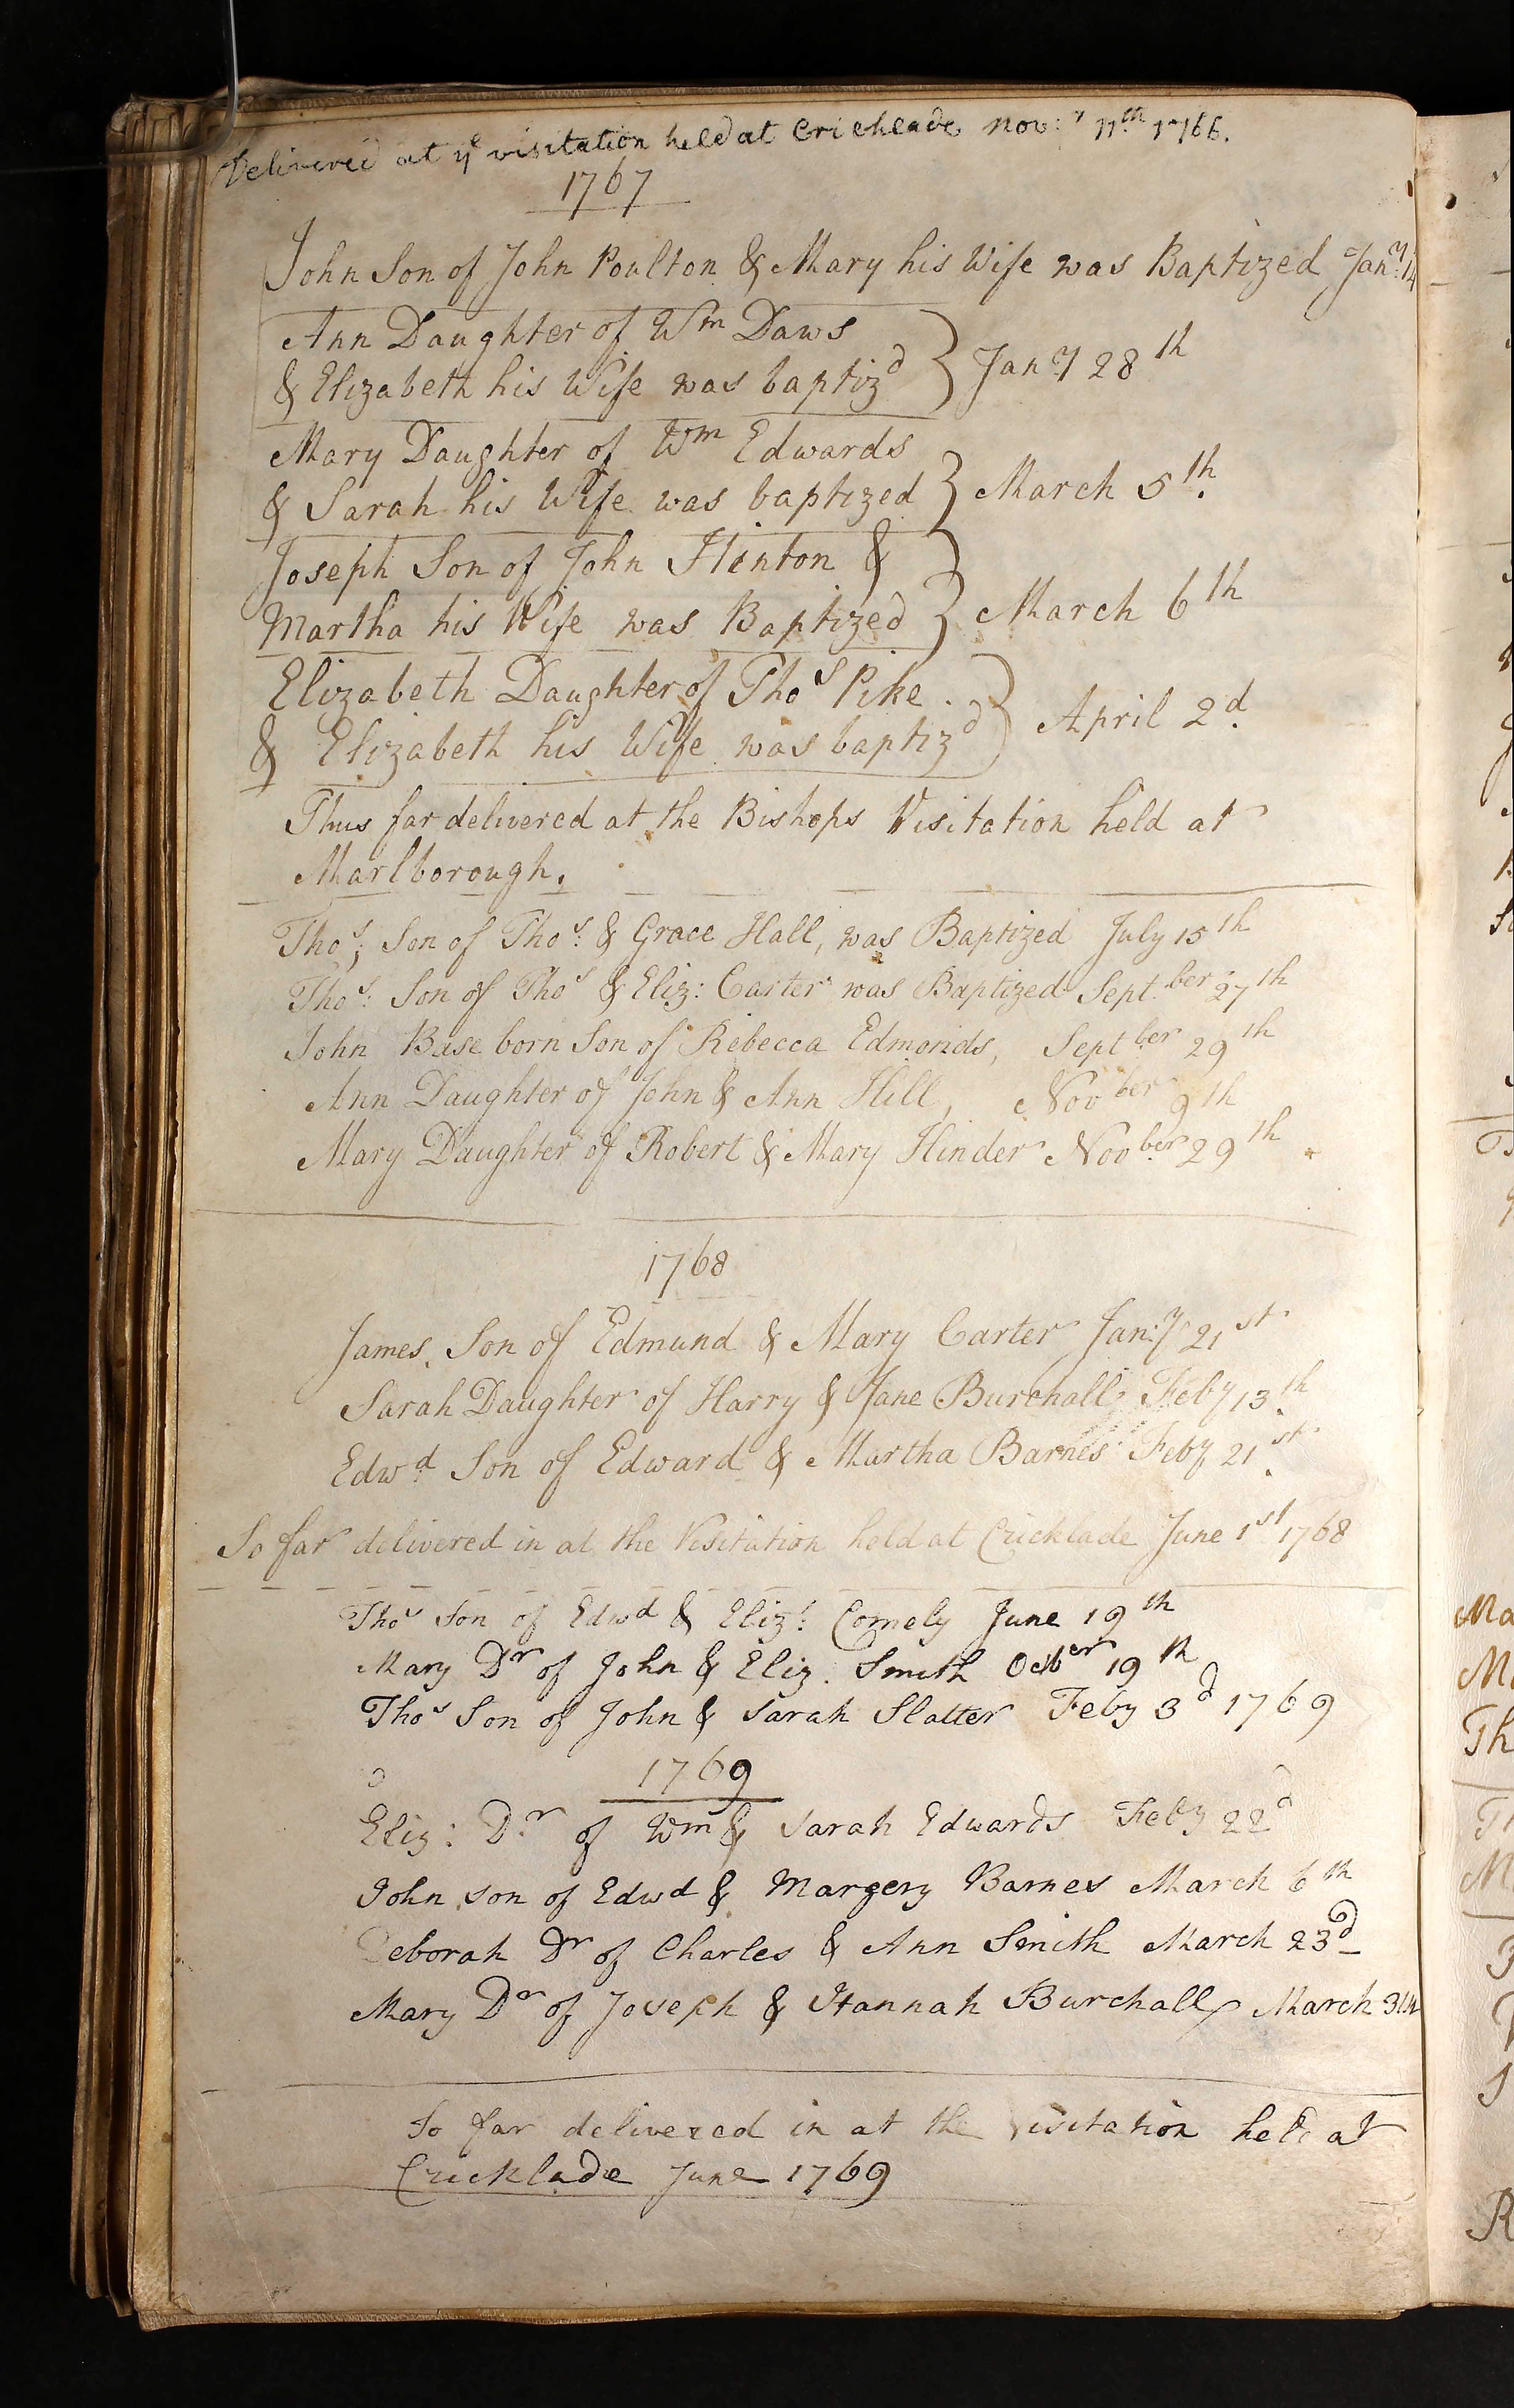 Delivered at ye visitation held at Cricklade Nov:r 11th 1766.
1767
John Son of John Poulton & Mary his Wife was Baptized Jany: 14
Ann Daughter of Wm Daws
& Elizabeth his Wife was baptizd } Jany 28th
Mary Daughter of Wm Edwards
& Sarah his Wife was baptized } March 5th.
Joseph Son of John Hinton &
Martha his Wife was Baptized } March 6th
Elizabeth Daughter of Thos Pike.
& Elizabeth his Wife was baptizd } April 2d.
Thus far delivered at the Bishops Visitation held at
Marlborough.
Thos; Son of Thos: & Grace Hall, was Baptized July 15th
Thos: Son of Thos & Eliz: Carter was Baptized Septber 27th
John Base born Son of Rebecca Edmonds, Septber 29th
Ann Daughter of John & Ann Hill, Novber 9th
Mary Daughter of Robert & Mary Hinder Novber 29th
1768
James Son of Edmund & Mary Carter Jan:y 21st
Sarah Daughter of Harry & Jane Burchall Feby 13th
Edwd Son of Edward & Martha Barnes Feby 21st
So far delivered in at the Visitation held at Cricklade June 1st 1768
Thos Son of Edwd & Eliz: Comely June 19th
Mary Dr of John & Eliz. Smith Octber 19th
Thos Son of John & Sarah Slatter Feby 3d 1769
1769
Eliz: Dr of Wm & Sarah Edwards Feby 22d
John son of Edwd & Margery Barnes March 6th
Deborah Dr of Charles & Ann Smith March 23d
Mary Dr of Joseph & Hannah Burchall March
So far delivered in at the visitation held at
Cricklade June 1769